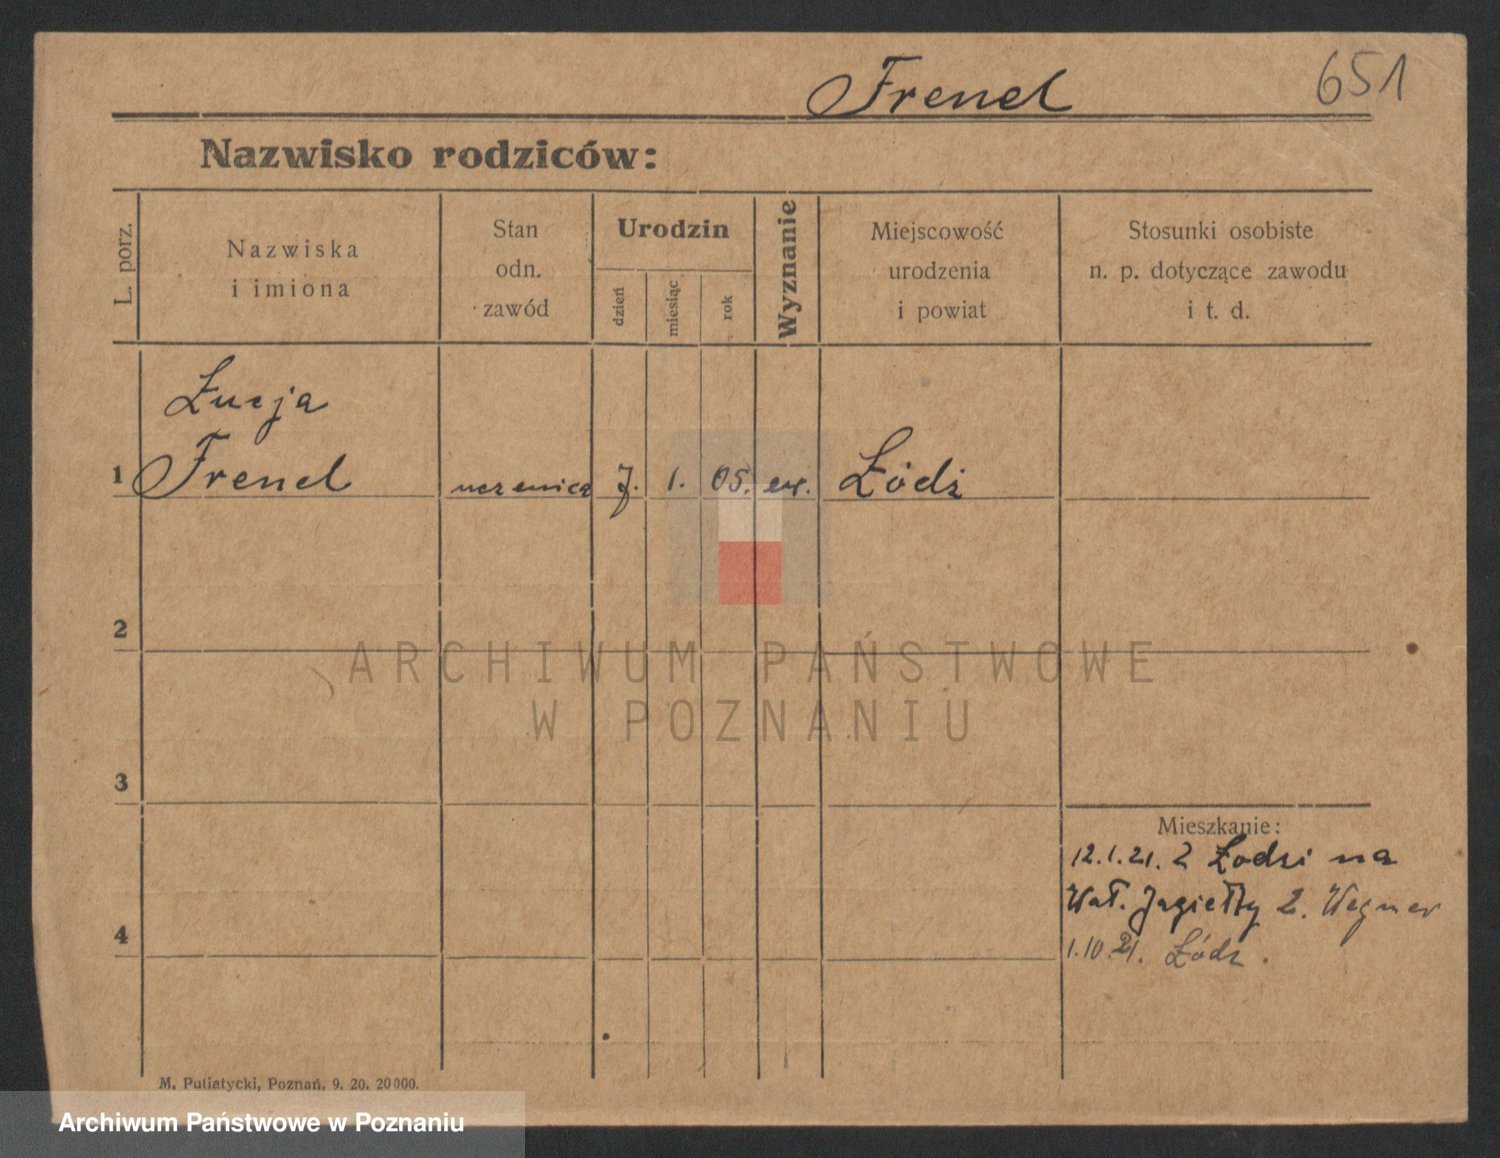 Frenel
651
Nazwisko rodziców:
L. porz.
Nazwiska
i imiona
Stan
odn.
zawód
Urodzin
dzień
miesiąc
rok
Wyznanie
Miejscowość
urodzenia
i powiat
Stosunki osobiste
n. p. dotyczące zawodu
i t. d.
Łucja
1 Frenel uczenica 7. 1. 05. ew. Łódź
2
3
4
Mieszkanie:
12.1.21. z Łodzi na
Wał. Jagiełły 2. Wegner
1.10.21. Łódź.
M. Putiatycki, Poznań. 9. 20. 20000.
ARCHIWUM PAŃSTWOWE
W POZNANIU
Archiwum Państwowe w Poznaniu